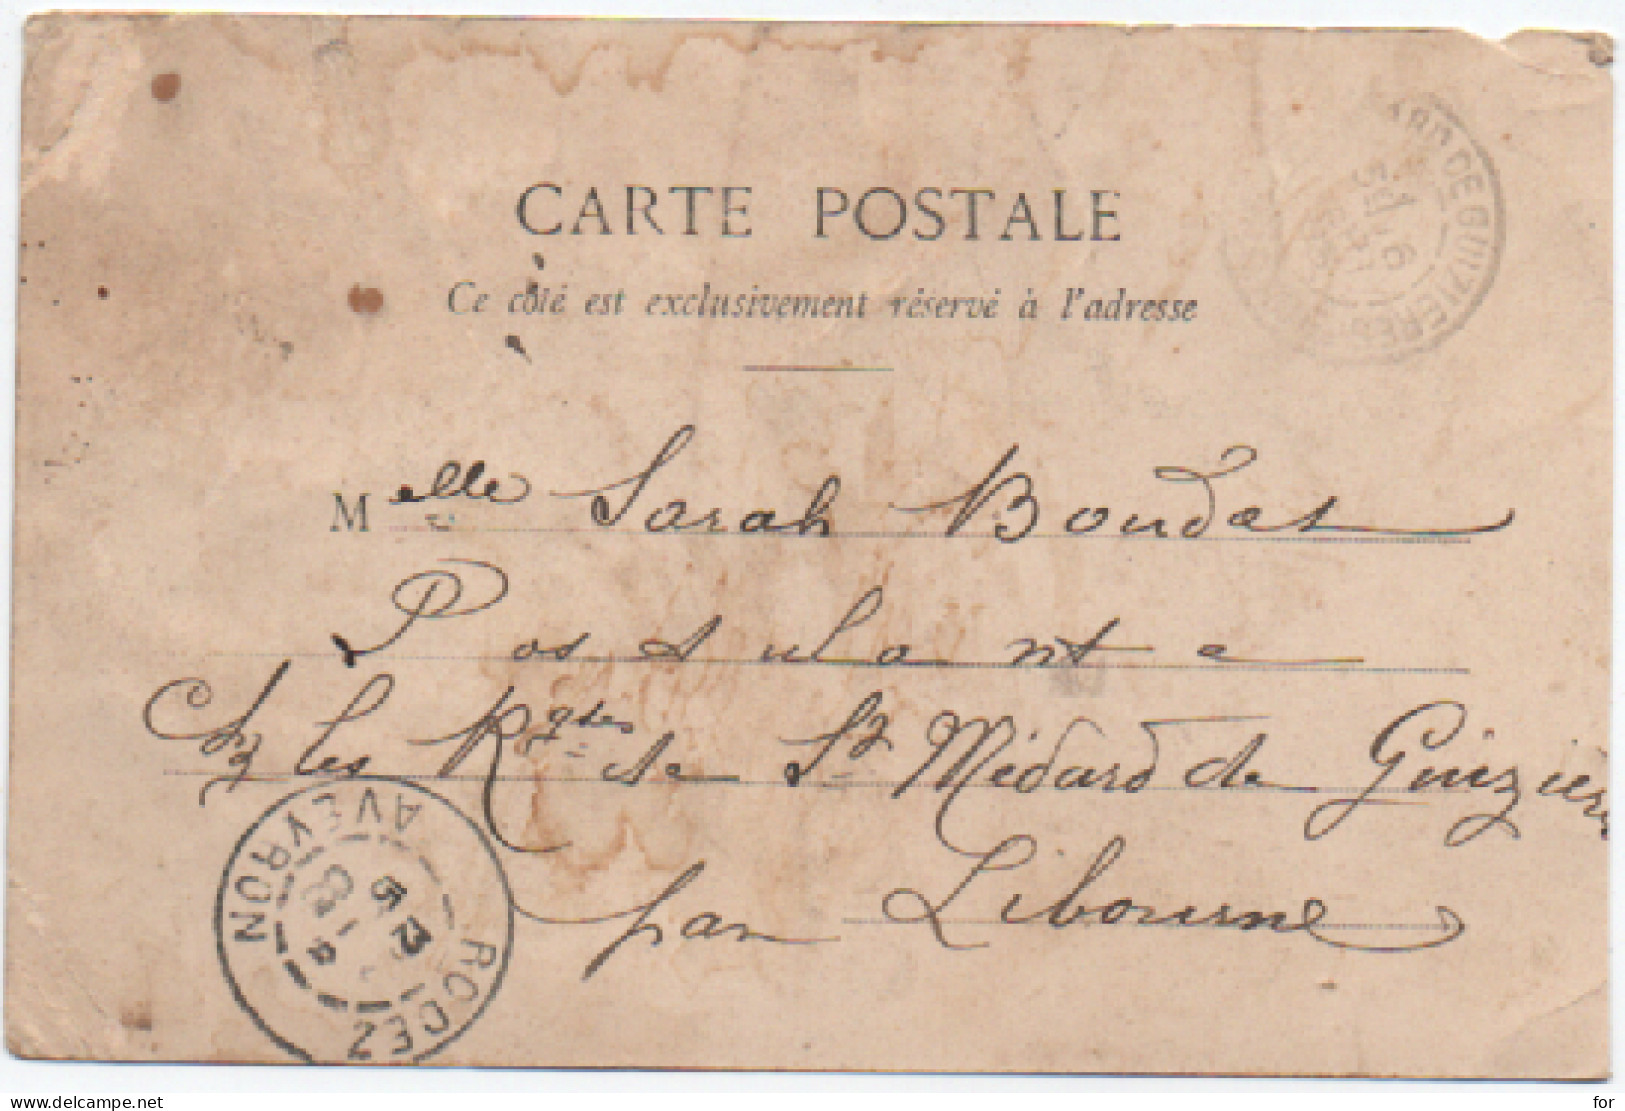 CARTE POSTALE
Ce côté est exclusivement réservé à l'adresse
Melle Sarah Boudet
Postulante
Chz les Rgtes de St Médard de Guizières
par Libourne
RODEZ AVEYRON
DE GUIZIERES
www.delcampe.net
for